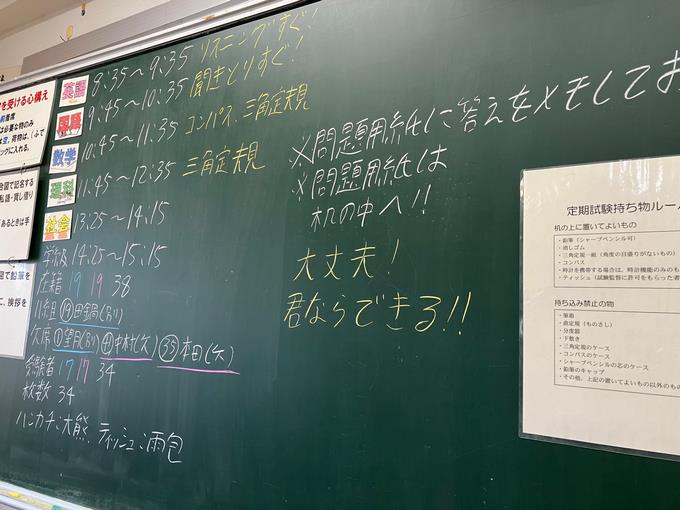 を受ける心構え
英語 8:35～9:35 リスニングすぐ!
国語 9:45～10:35 聞きとりすぐ!
数学 10:45～11:35 コンパス、三角定規
理科 11:45～12:35 三角定規
社会 13:25～14:15
学級 14:25～15:15
在籍 19 19 38
欠席
受験者 17 17 34
枚数 34
ハンカチ:大熊、ティッシュ:雨包
※問題用紙に答えをメモしてお
※問題用紙は
机の中へ!!
大丈夫!
君ならできる!!
定期試験持ち物ルー
机の上に置いてよいもの
・鉛筆(シャープペンシル可)
・消しゴム
・三角定規一組(角度の目盛りがないもの)
・コンパス
・時計を携帯する場合は、時計機能のみのも
・ティッシュ(試験監督に許可をもらった者
持ち込み禁止の物
・筆箱
・直定規(ものさし)
・分度器
・下敷き
・三角定規のケース
・コンパスのケース
・シャープペンシルの芯のケース
・鉛筆のキャップ
・その他、上記の置いてよいもの以外のも